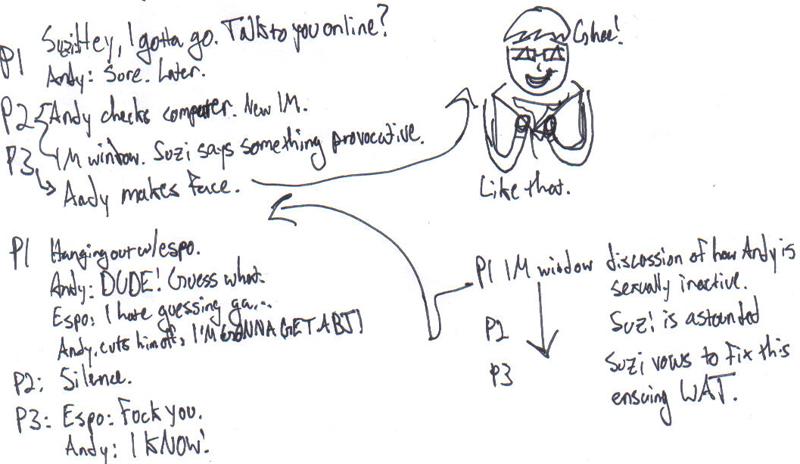 P1 Suzi: Hey, I gotta go. Talk to you online?
Andy: Sore. Later.
P2 Andy checks computer. New IM.
P3 IM window. Suzi says something provocative.
Andy makes face.
Ghee!
Like that.
P1 Hanging out w/espo.
Andy: DUDE! Guess what.
Espo: I hate guessing ga...
Andy, cuts him off: I'M GONNA GET A BJ!
P2: Silence.
P3: Espo: Fock you.
Andy: I KNOW!
P1 IM window discussion of how Andy is
sexually inactive.
P2 Suzi is astounded
P3 Suzi vows to fix this
ensuing WAT.